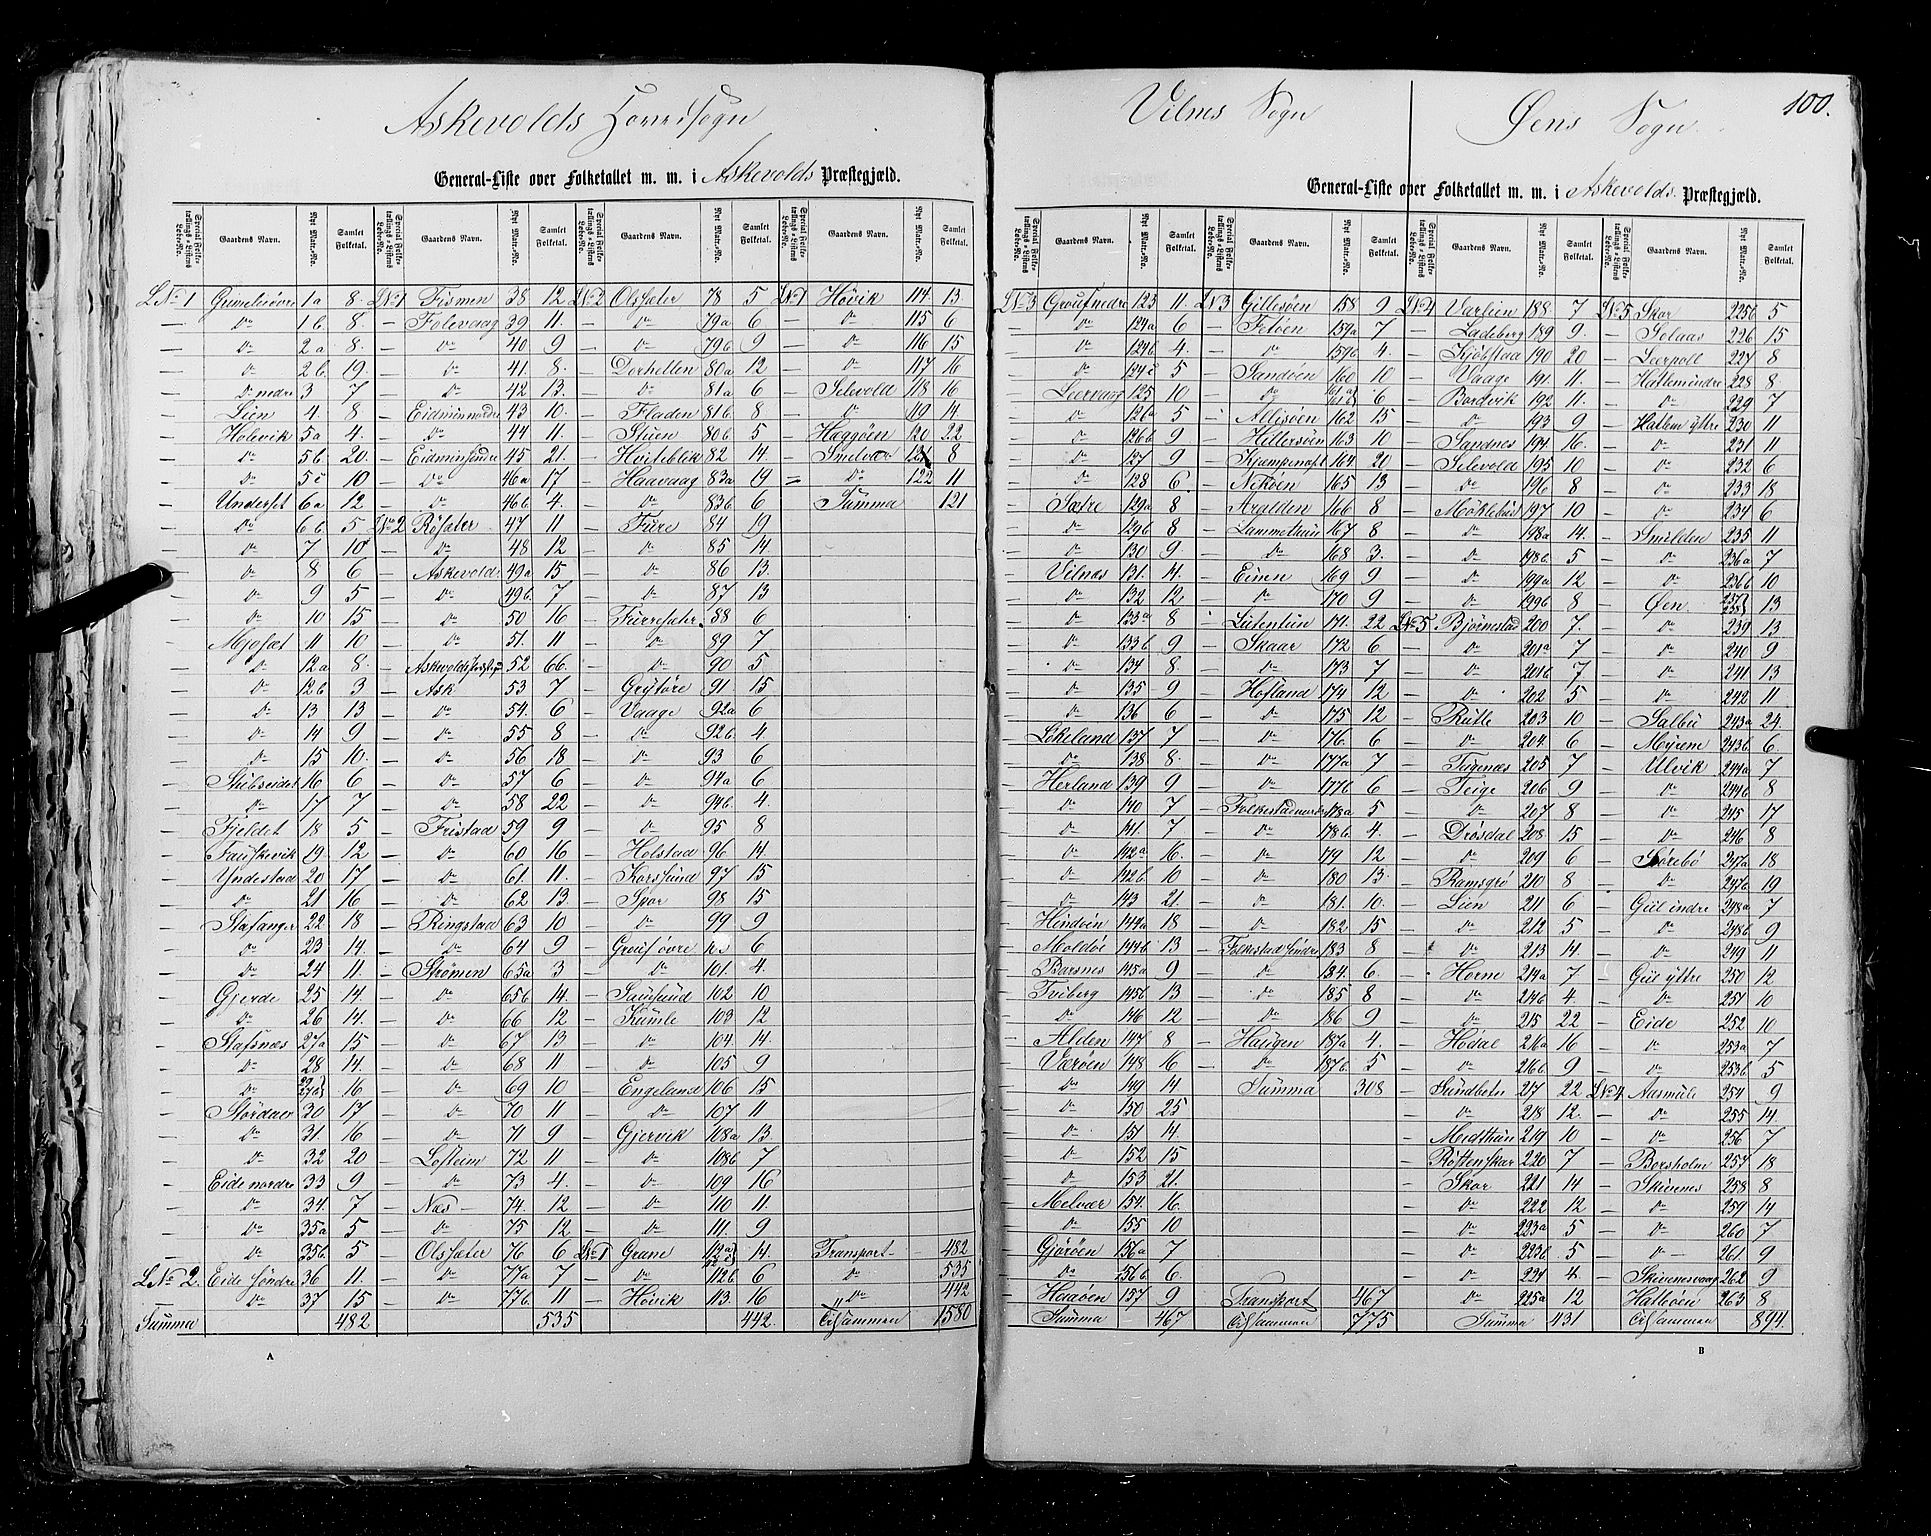 Askevolds Hovedsogn
General-Liste over Folketallet m. m. i Askevolds Præstegjæld.
Special Folketællings-Listens Løbe-No. Gaardens Navn. Nyt Matr.-No. Samlet Folketal. Special Folketællings-Listens Løbe-No. Gaardens Navn. Nyt Matr.-No. Samlet Folketal. Special Folketællings-Listens Løbe-No. Gaardens Navn. Nyt Matr.-No. Samlet Folketal. Special Folketællings-Listens Løbe-No. Gaardens Navn. Nyt Matr.-No. Samlet Folketal.
LNo 1 1a 8. LNo 1 Fismen 38 12 LNo 2 Olsæter 78 5 LNo 1 Høvik 114 13.
— Do 1b. 8. — Folevaag 39 11. — Do 79a 6 — Do 115 6
— Do 2a 8. — Do 40 9 — Do 79b 9 — Do 116 15
— Do 2b. 19. — Do 41. 8. — Dorhellen 80a 12 — Do 117 16
— Do nedre 3 7 — Do 42 13. — Do 81a 6 — Selevold 118 16
— Lien 4. 8 — Eidmin nordre 43 10. — Fladen 81b 8 — Do 119 14
— Holevik 5a 4. — Do 44 11. — Stuen 80b 5 — Hæggøen 120 22
— Do 5b. 20. — Eidmin søndre 45 21. — Hviteblik 82 14 — Smelvær 121 8
— Do 5c 10 — Do 46a 17 — Haavaag 83a 19 — Do 122 11
— Underset 6a 12 — Do 46b 4. — Do 83b 6 Summa 121
— Do 6b. 5 LNo 2 Røsæter 47 11 — Fure 84 19
— Do 7 10 — Do 48 12 — Do 85 14.
— Do 8 6 — Askevold 49a 15 — Do 86 13.
— Do 9 5 — Do 49b. 7 — Do 87 13
— Do 10 15 — Do 50 16 — Furresæter 88 6
— Mjøset 11 10 — Do 51. 11 — Do 89 7
— Do 12a 8. — 52 66. — Do 90 5
— Do 12b 3 — Ask 53 7 — Grytøre 91 15
— Do 13. 13 — Do 54. 6 — Vaage 92a 6
— Do 14 9 — Do 55 8 — Do 92b 4
— Do 15 10. — Do 56 18 — Do 93 6
— Stubseidet 16 6 — Do 57 6 — Do 94a 6
— Do 17 7 — Do 58 22 — Do 94b. 4.
— Fjeldet 18 5 — Fristad 59 9 — Do 95 8
— Fauskevik 19. 12 — Do 60 16 — Holstad 96 14.
— Yndestad 20 17 — Do 61 11. — Korssund 97 15
— Do 21 16 — Do 62 13. — Spor 98 15
— Stafanger 22 18 — Ringstad 63 10 — Do 99 9
— Do 23 14. — Do 64 9 — Grouf øvre 100 6
— Do 24 11. — Strømen 65a 3 — Do 101. 4.
— Gjerde 25 14. — Do 65b 14. — Sausund 102 10
— Do 26 14. — Do 66 12 — Kumle 103 12
— Stafsnæs 27a 15 — Do 67 13 — Do 104 14.
— Do 28 14. — Do 68 11 — Do 105 9
— Do 29 27b 16 — Do 69 10 — Engeland 106 15
— 30 17 — Do 70 11 — Do 107 11
— Do 31. 16 — Do 71 9 — Gjervik 108a 13.
— Do 32 20 — Losteim 72 11 — Do 108b 7
— Eide nordre 33 9 — Do 73 4. — Do 109 16
— Do 34. 7 — Næs 74. 12 — Do 110 11.
— Do 35a 5 — Do 75 12 — Do 111. 9
— Do 35b. 5 — Olsæter 76 6 LNo 1 Grane 14. Transport 482
LNo 2. Eide søndre 36 11. — Do 77a 7 — Do 112b 6 Do 535
— Do 37 15 — Do 77b. 11 — Høvik 113. 16 Do 442
Summa 482 535 442. Tilsammen 1580
A
Vilnes Sogn Øens Sogn. 100.
General-Liste over Folketallet m. m. i Askevolds Præstegjæld.
Special Folketællings-Listens Løbe-No. Gaardens Navn. Nyt Matr.-No. Samlet Folketal. Special Folketællings-Listens Løbe-No. Gaardens Navn. Nyt Matr.-No. Samlet Folketal. Special Folketællings-Listens Løbe-No. Gaardens Navn. Nyt Matr.-No. Samlet Folketal. Special Folketællings-Listens Løbe-No. Gaardens Navn. Nyt Matr.-No. Samlet Folketal.
LNo 3 Grouf nedre 123 11. LNo 3 Gillesøen 158 9 LNo 4 Varlien 188. 7 LNo 5 Skor 225b 5
— Do 124a 6 — Fetøen 159a 7 — Ladeberg 189 9. — Solaas 226 15
— Do 124b 4. — Do 159b. 4. — Kjøbstad 190 20 — Leerpoll 227 8
— Do 124c 5 — Sandøen 160 10 — Vaage 191. 11. — Hatlem indre 228 8.
— Leervaag 125 10 — Do 6 — Bordvik 192 11. — Do 229 7
— Do 126a 5 — Allisøen 162 15 — Do 193 9 — Hatlem yttre 230 11
— Do 126b 9 — Hillersøen 163 10 — Sandnes 194 16. — Do 231 11
— Do 127 9 — 164. 20 — Selevold 195 10 — Do 232 6
— Do 128 6 — Nekøen 165 13 — Do 196 8 — Do 233 18
— Sætre 129a 8 — Aralden 166 8 — Møklebust 197 10 — Do 234 6
— Do 129b 8 — Lammetun 167 8 — Do 198a 14. — Smilden 235 11
— Do 130 9 — Do 168 3. — Do 198b. 5 — Do 236a 7
— Vilnæs 131. 14. — Eiren 169 9 — Do 199a 12 — Do 236b 10
— Do 132 12 — Do 170 9 — Do 199b 8 — Øen 237 238 13
— Do 133a 8 — Lutentun 171. 22 LNo 5 Bjørnestad 200 7. — Do 239 13
— Do 133b 9 — Skaar 172 6 — Do 201a 7 — Do 240 9
— Do 134 8. — Do 173 7 — Do 201b 7 — Do 241 13
— Do 135 9 — Hofland 174 12 — Do 202 5 — Do 242 11
— Do 136 6 — Do 175 12 — Rutle 203 10 — Salbu 243a 24.
— Løkeland 137 7 — Do 176. 6 — Do 204. 6 — Myrene 243b 6
— Do 138 8. — Do 177a 7 — Teigenæs 205 7 — Ulvik 244a 7
— Herland 139 9 — Do 177b 6 — Teige 206 9 — Do 244b 8
— Do 140 7 — Folkestad nordre 178a 5 — Do 207 8 — Do 245 17
— Do 141. 7 — Do 178b. 4. — Drøsdal 208 15 — Do 246 8
— Do 142a 16. — Do 179 12 — Do 209 6 — Sørebø 247a 18
— Do 142b 10 — Do 180 13. — Ramsgrø 210 8 — Do 247b 19
— Do 143 21. — Do 181. 10. — Lien 211 6 — Giil indre 248a 7
— Hindøen 144a 18 — Do 182 15 — Do 212 5 — Do 248b 9
— Moldøe 144b 13 — Folkestad søndre 183 8 — Do 213 14. — Do 249 11
— Barsnes 145a 9 — Do 184. 6. — Horne 214a 7 — Giil yttre 250 12
— Tviberg 145b 13 — Do 185 8 — Do 214b 4. — Do 251 10
— Do 146 12 — Do 186 9 — Do 215 22 — Eide 252 10
— Alden 147 8 — Haugen 187a 4. — Hødal 216a 16 — Do 253a 7
— Værøen 148 16 — Do 187b. 5 — Do 216b 9 — Do 253b. 5
— Do 149 14 Summa 308 — 217 22 LNo 4 Aasmule 254 9
— Do 150 25 — Do 218 12. — Do 255 14.
— Do 151 14. — Midthun 219 10 — Do 256 7
— Do 152 15 — Røttenskar 220 7 — Borsholm 257 18
— Do 153 21. — Skor 221 14 — Skivenes 258 8
— Melvær 154. 16. — Do 222 12 — Do 259 14
— Do 155 10 — Do 223a 5 — Do 260 7
— Gjørøen 156a 7 — Do 223b. 5 — Do 261 9
— Do 156b 6. — Do 224 4. — Skivenesvaag 262 9
— Haaøen 157 9 Transport 467 — Do 225a 12 — Hatløen 263 8
Summa 467 Tilsammen 775 Summa 431 Tilsammen 894
B